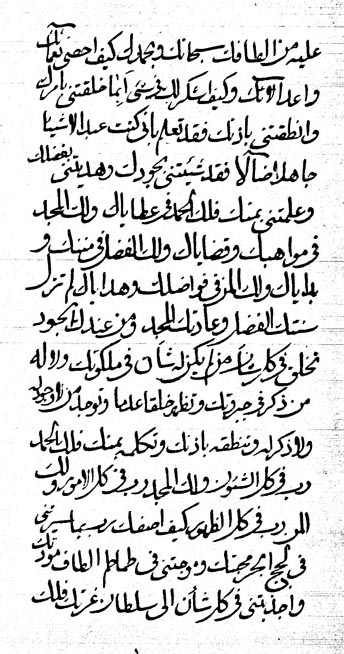 عليه من الطافك سبحانك وبحمدك كيف احصي نعمائك
واعد الائك وكيف اشكرك في شئ انما خلقتني بامرك
وانطقتني باذنك فقد تعلم باني كنت عبدا لا شيئا
جاهلا ضالا فقد شيئتني بجودك وهديتني بفضلك
وعلمتني بمنك فلك الحمد في عطاياك ولك المجد
في مواهبك وقضاياك ولك الفضل في مننك و
بلاياك ولك المن في فواضلك وهداياك لم تزل
سنتك الفضل وعادتك المجد ومن عندك الجود
تخلق في كل شأن من لم يكن له شأن في ملكوتك ولا له
من ذكر في جبروتك وتظهر خلقا علما وتوجد من لا وجود له
ولا ذكر له وتنطقه باذنك وتكلمه بمنك فلك الحمد
رب في كل الشئون ولك المجد رب في كل الامور ولك
المن رب في كل الظهور كيف اصفك رب بما سيرتني
في لجج ابحر محبتك وزوجتني في طماطم الطاف مودتك
واجذبتني في كل شأن الى سلطان عزتك فلك